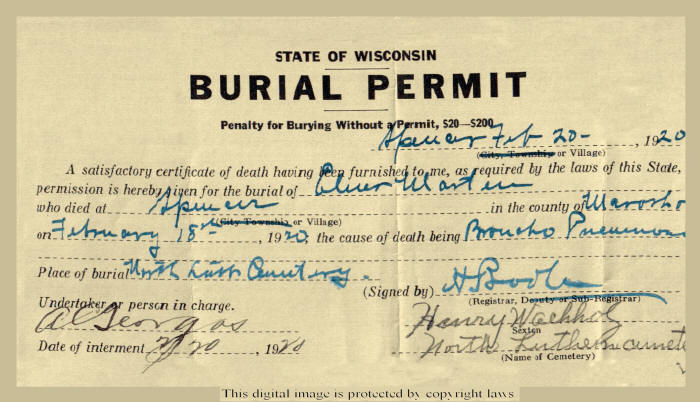 STATE OF WISCONSIN
BURIAL PERMIT
Penalty for Burying Without a Permit, $20—$200
Spencer Feb 20- , 1920
(City, Township or Village)
A satisfactory certificate of death having been furnished to me, as required by the laws of this State,
permission is hereby given for the burial of Elmer Martin
who died at Spencer in the county of
(City Township or Village)
on February 18 , 1920, the cause of death being Broncho Pneumon
Place of burial North Luth Cemetery.
(Signed by) H Boole
(Registrar, Deputy or Sub-Registrar)
Undertaker or person in charge.
Henry
Sexton
Date of interment 2/20 , 1920
North
(Name of Cemetery)
This digital image is protected by copyright laws